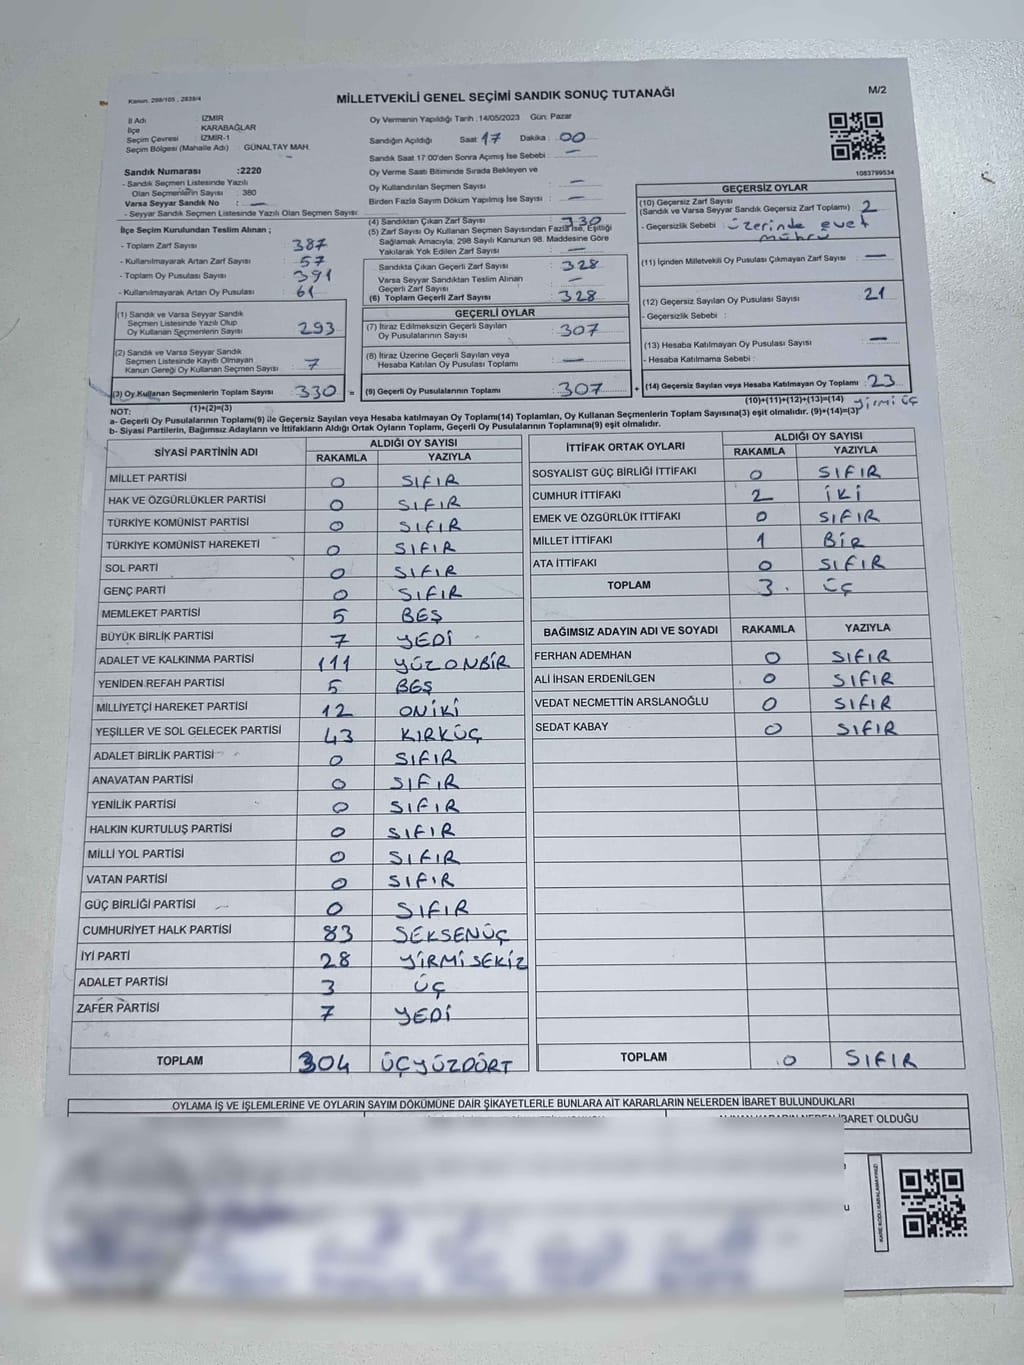 Kanun: 298/105 , 2839/4
MİLLETVEKİLİ GENEL SEÇİMİ SANDIK SONUÇ TUTANAĞI
M/2
İl Adı : İZMİR
İlçe : KARABAĞLAR
Seçim Çevresi : İZMİR-1
Seçim Bölgesi (Mahalle Adı) : GÜNALTAY MAH.
Sandık Numarası :2220
- Sandık Seçmen Listesinde Yazılı
Olan Seçmenlerin Sayısı : 380
Varsa Seyyar Sandık No : —
- Seyyar Sandık Seçmen Listesinde Yazılı Olan Seçmen Sayısı:
Oy Vermenin Yapıldığı Tarih :14/05/2023 Gün: Pazar
Sandığın Açıldığı Saat :17 Dakika : 00
Sandık Saat 17:00'den Sonra Açımış İse Sebebi : —
Oy Verme Saati Bitiminde Sırada Bekleyen ve
Oy Kullandırılan Seçmen Sayısı : —
Birden Fazla Sayım Döküm Yapılmış İse Sayısı : —
1083799534
İlçe Seçim Kurulundan Teslim Alınan ;
- Toplam Zarf Sayısı : 387
- Kullanılmayarak Artan Zarf Sayısı : 57
- Toplam Oy Pusulası Sayısı : 391
- Kullanılmayarak Artan Oy Pusulası : 61
(1) Sandık ve Varsa Seyyar Sandık
Seçmen Listesinde Yazılı Olup
Oy Kullanan Seçmenlerin Sayısı : 293
(2) Sandık ve Varsa Seyyar Sandık
Seçmen Listesinde Kayıtlı Olmayan
Kanun Gereği Oy Kullanan Seçmen Sayısı : 7
(3) Oy Kullanan Seçmenlerin Toplam Sayısı : 330 =
(1)+(2)=(3)
(4) Sandıktan Çıkan Zarf Sayısı : 330
(5) Zarf Sayısı Oy Kullanan Seçmen Sayısından Fazla İse, Eşitliği
Sağlamak Amacıyla; 298 Sayılı Kanunun 98. Maddesine Göre
Yakılarak Yok Edilen Zarf Sayısı : —
Sandıkta Çıkan Geçerli Zarf Sayısı : 328
Varsa Seyyar Sandıktan Teslim Alınan
Geçerli Zarf Sayısı : —
(6) Toplam Geçerli Zarf Sayısı : 328
GEÇERLİ OYLAR
(7) İtiraz Edilmeksizin Geçerli Sayılan
Oy Pusulalarının Sayısı : 307
(8) İtiraz Üzerine Geçerli Sayılan veya
Hesaba Katılan Oy Pusulası Toplamı : —
(9) Geçerli Oy Pusulalarının Toplamı : 307 +
GEÇERSİZ OYLAR
(10) Geçersiz Zarf Sayısı
(Sandık ve Varsa Seyyar Sandık Geçersiz Zarf Toplamı) : 2
- Geçersizlik Sebebi : üzerinde evet
mührü
(11) İçinden Milletvekili Oy Pusulası Çıkmayan Zarf Sayısı : —
(12) Geçersiz Sayılan Oy Pusulası Sayısı : 21
- Geçersizlik Sebebi :
(13) Hesaba Katılmayan Oy Pusulası Sayısı : —
- Hesaba Katılmama Sebebi :
(14) Geçersiz Sayılan veya Hesaba Katılmayan Oy Toplamı : 23
(10)+(11)+(12)+(13)=(14) yirmi üç
NOT:
a- Geçerli Oy Pusulalarının Toplamı(9) ile Geçersiz Sayılan veya Hesaba katılmayan Oy Toplamı(14) Toplamları, Oy Kullanan Seçmenlerin Toplam Sayısına(3) eşit olmalıdır. (9)+(14)=(3)
b- Siyasi Partilerin, Bağımsız Adayların ve İttifakların Aldığı Ortak Oyların Toplamı, Geçerli Oy Pusulalarının Toplamına(9) eşit olmalıdır.
SİYASİ PARTİNİN ADI
ALDIĞI OY SAYISI
RAKAMLA YAZIYLA
MİLLET PARTİSİ 0 SIFIR
HAK VE ÖZGÜRLÜKLER PARTİSİ 0 SIFIR
TÜRKİYE KOMÜNİST PARTİSİ 0 SIFIR
TÜRKİYE KOMÜNİST HAREKETİ 0 SIFIR
SOL PARTİ 0 SIFIR
GENÇ PARTİ 0 SIFIR
MEMLEKET PARTİSİ 5 BEŞ
BÜYÜK BİRLİK PARTİSİ 7 YEDİ
ADALET VE KALKINMA PARTİSİ 111 YÜZONBİR
YENİDEN REFAH PARTİSİ 5 BEŞ
MİLLİYETÇİ HAREKET PARTİSİ 12 ONİKİ
YEŞİLLER VE SOL GELECEK PARTİSİ 43 KIRKÜÇ
ADALET BİRLİK PARTİSİ 0 SIFIR
ANAVATAN PARTİSİ 0 SIFIR
YENİLİK PARTİSİ 0 SIFIR
HALKIN KURTULUŞ PARTİSİ 0 SIFIR
MİLLİ YOL PARTİSİ 0 SIFIR
VATAN PARTİSİ 0 SIFIR
GÜÇ BİRLİĞİ PARTİSİ 0 SIFIR
CUMHURİYET HALK PARTİSİ 83 SEKSENÜÇ
İYİ PARTİ 28 YİRMİSEKİZ
ADALET PARTİSİ 3 ÜÇ
ZAFER PARTİSİ 7 YEDİ
TOPLAM 304 ÜÇYÜZDÖRT
İTTİFAK ORTAK OYLARI
ALDIĞI OY SAYISI
RAKAMLA YAZIYLA
SOSYALIST GÜÇ BİRLİĞİ İTTİFAKI 0 SIFIR
CUMHUR İTTİFAKI 2 İKİ
EMEK VE ÖZGÜRLÜK İTTİFAKI 0 SIFIR
MİLLET İTTİFAKI 1 BİR
ATA İTTİFAKI 0 SIFIR
TOPLAM 3 ÜÇ
BAĞIMSIZ ADAYIN ADI VE SOYADI RAKAMLA YAZIYLA
FERHAN ADEMHAN 0 SIFIR
ALİ İHSAN ERDENİLGEN 0 SIFIR
VEDAT NECMETTİN ARSLANOĞLU 0 SIFIR
SEDAT KABAY 0 SIFIR
TOPLAM 0 SIFIR
OYLAMA İŞ VE İŞLEMLERİNE VE OYLARIN SAYIM DÖKÜMÜNE DAİR ŞİKAYETLERLE BUNLARA AİT KARARLARIN NELERDEN İBARET BULUNDUKLARI
İBARET OLDUĞU